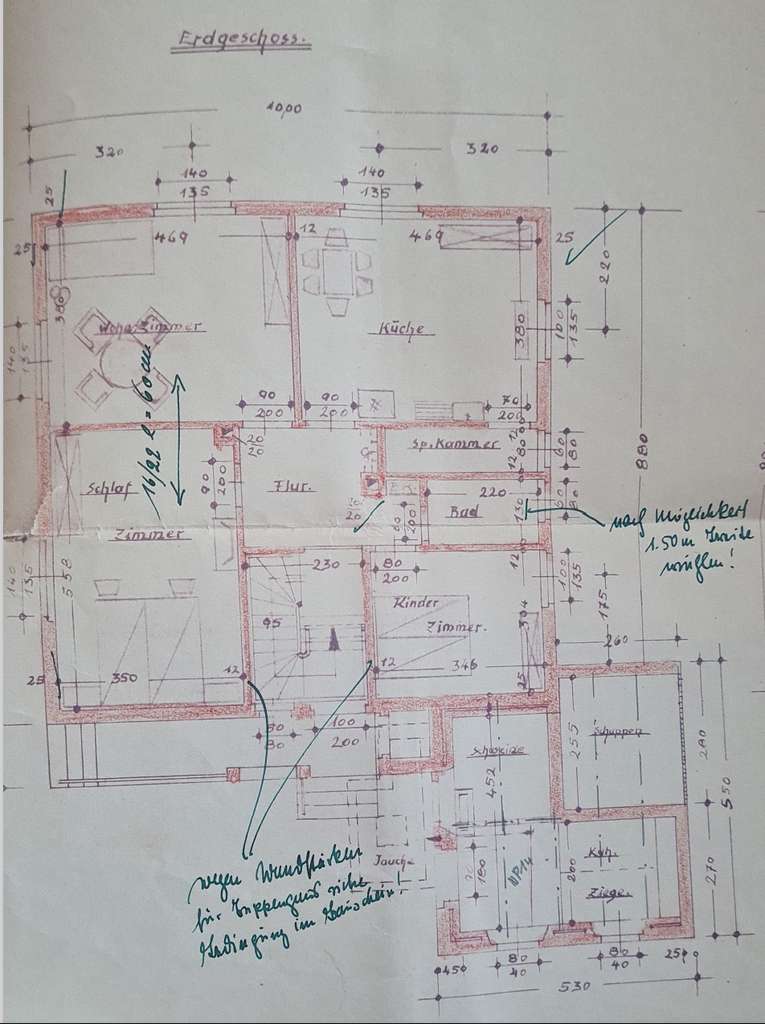 Erdgeschoss.
10,00
320
320
140
135
140
135
25
469
12
469
25
25
220
380
Wohnzimmer
Küche
380
100
135
140
135
16/22 e = 60cm
90
200
90
200
70
200
20
20
Sp. Kammer
12
80
12
60
80
880
Schlaf
Zimmer
90
200
Flur.
20
20
60
200
Bad
220
130
60
80
nach Möglichkeit
1.50 m Breite
wählen!
12
140
135
558
230
80
200
100
135
175
95
Kinder
Zimmer.
394
260
25
350
12
12
346
25
80
80
100
200
255
Schuppen
280
550
452
Jauche
wegen Wandstärken
für Treppenhaus siehe
Bedingung im Bauschein!
180
NP14
200
Kuh.
Ziege.
270
80
40
80
40
45
25
530